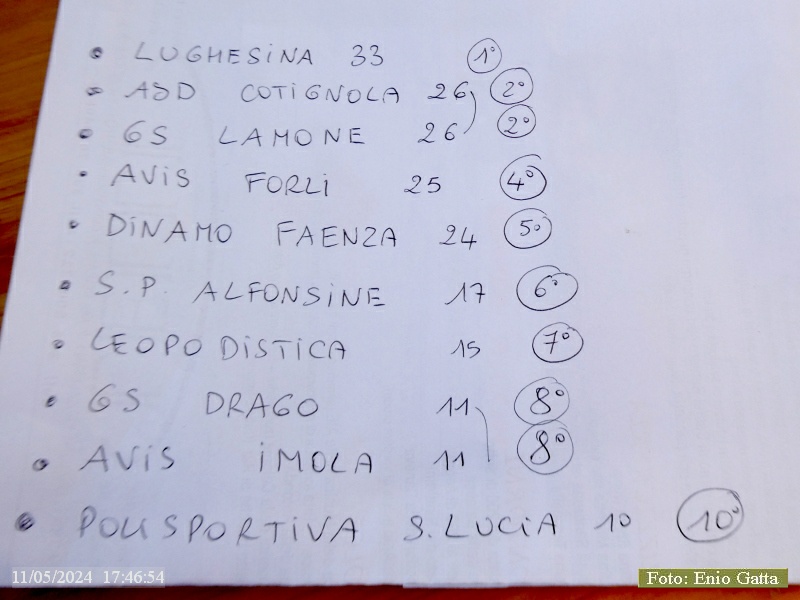 • LUGHESINA 33 1°
• ASD COTIGNOLA 26 2°
• GS LAMONE 26 2°
• AVIS FORLI 25 4°
• DINAMO FAENZA 24 5°
• S.P. ALFONSINE 17 6°
• LEOPODISTICA 15 7°
• GS DRAGO 11 8°
• AVIS IMOLA 11 8°
• POLISPORTIVA S. LUCIA 10 10°
11/05/2024 17:46:54 Foto: Enio Gatta